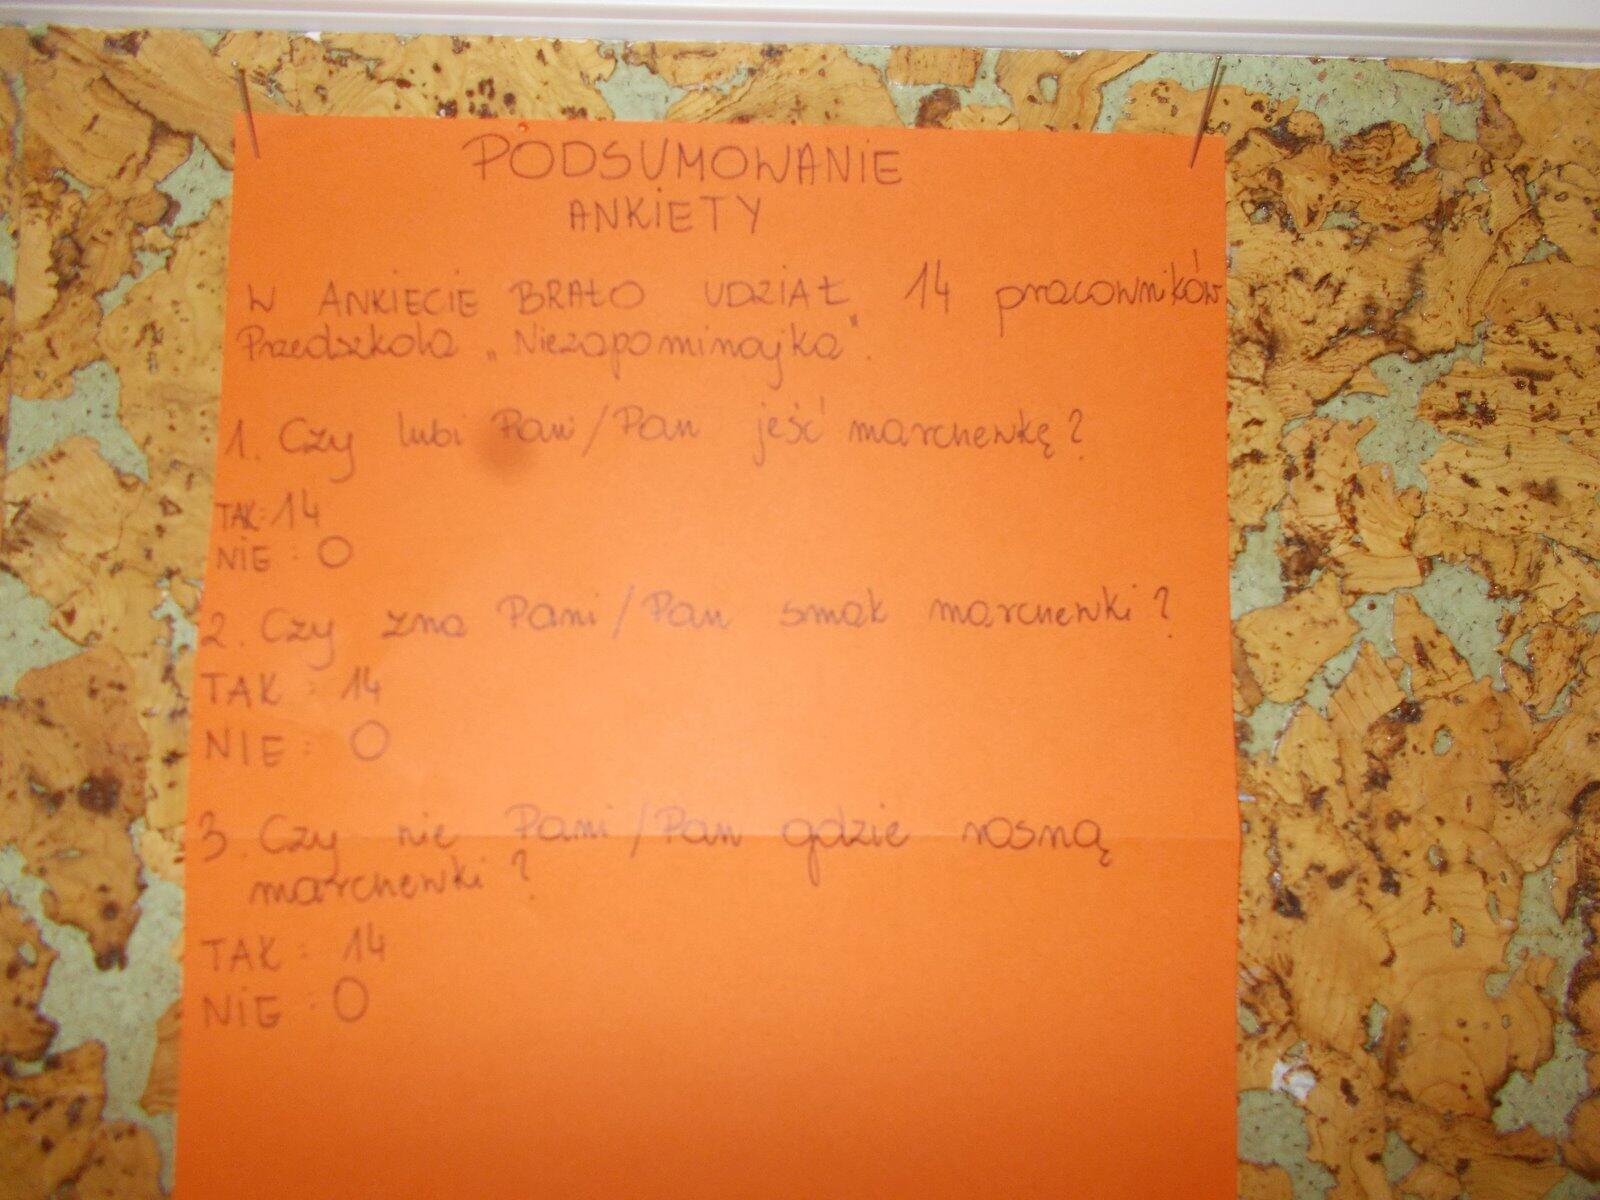 PODSUMOWANIE
ANKIETY
W ANKIECIE BRAŁO UDZIAŁ 14 pracowników
Przedszkola „Niezapominajka".
1. Czy lubi Pani/Pan jeść marchewkę?
TAK: 14
NIE: 0
2. Czy zna Pani/Pan smak marchewki?
TAK: 14
NIE: 0
3. Czy nie Pani/Pan gdzie rosną
marchewki?
TAK: 14
NIE: 0